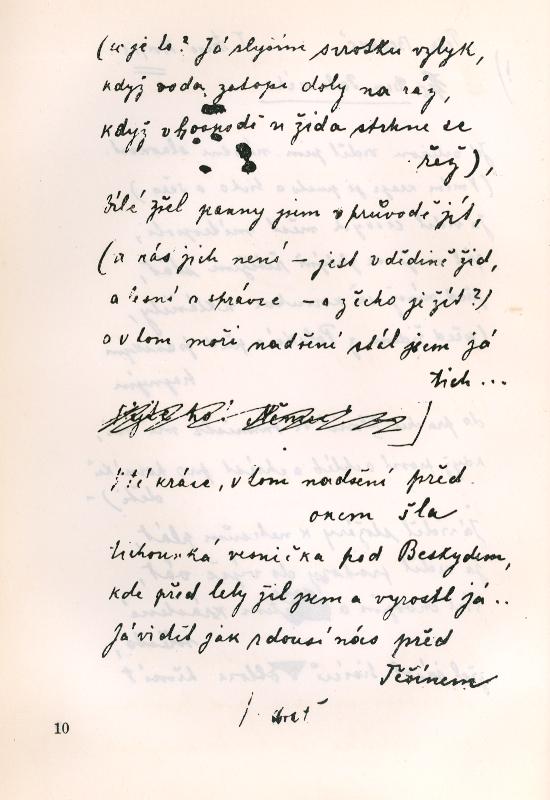 (co je to? Já slyším svrostku vzlyk,
když voda zatopí doly na ráz,
když v hospodě u žida strhne se
řež),
bílé zřel panny jsem v průvodě jít,
(u nás jich není – jest v dědině žid,
a lesní a správce – a z čeho je žít?)
a v tom moři nadšení stál jsem já
tich...
té kráse, v tom nadšení před
okem šla
tichounká vesnička pod Beskydem,
kde před lety žil jsem a vyrostl já..
Já viděl jak rdousí nás před
Těšínem
10